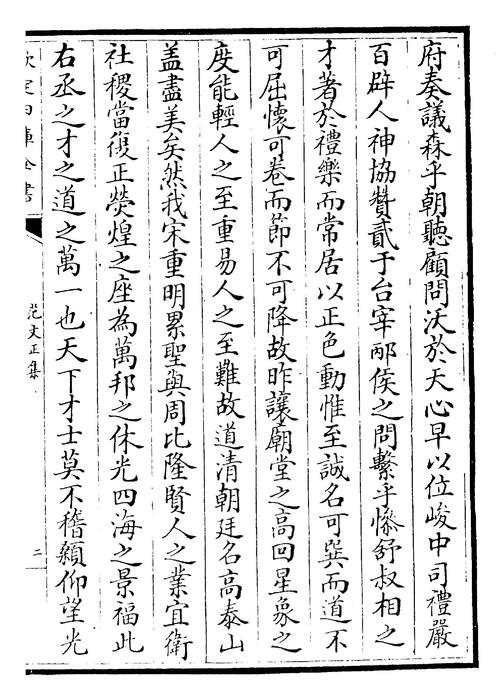 府奏議森乎朝聽顧問沃於天心早以位峻中司禮嚴
百辟人神協贊貳于台宰邴侯之問繫乎慘舒叔相之
才著於禮樂而常居以正色動惟至誠名可巽而道不
可屈懷可卷而節不可降故昨讓廟堂之高回星象之
度能輕人之至重易人之至難故道清朝廷名高泰山
盖盡美矣然我宋重明累聖與周比隆賢人之業宜衛
社稷當復正熒煌之座為萬邦之休光四海之景福此
右丞之才之道之萬一也天下才士莫不稽顙仰望光
欽定四庫全書
范文正集
二